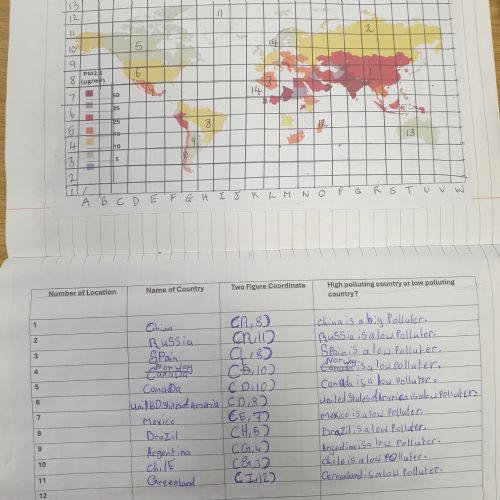 13
12
11
10
9
8
7
6
5
4
3
2
1
11
2
5
4
6
3
1
14
8
9
12
13
PM2.5
(μg/m³)
50
35
25
15
10
5
A B C D E F G H I J K L M N O P Q R S T U V W
Number of Location Name of Country Two Figure Coordinate High polluting country or low polluting country?
1 China (R,8) China is a big Polluter.
2 Russia (R,11) Russia is a low Polluter.
3 Spain (L,8) Spain is a low Polluter.
4 Norway Canada (D,10) Norway Canada is a low Polluter.
5 Canada (D,10) Canada is a low Polluter.
6 (D,8) United States of America is a low Polluter.
7 Mexico (E,7) Mexico is a low Polluter.
8 Brazil (H,5) Brazil is a low Polluter.
9 Argentina (G,4) Argentina is a low Polluter.
10 Chile (G,3) Chile is a low Polluter.
11 Greenland (I,12) Greenland is a low Polluter.
12